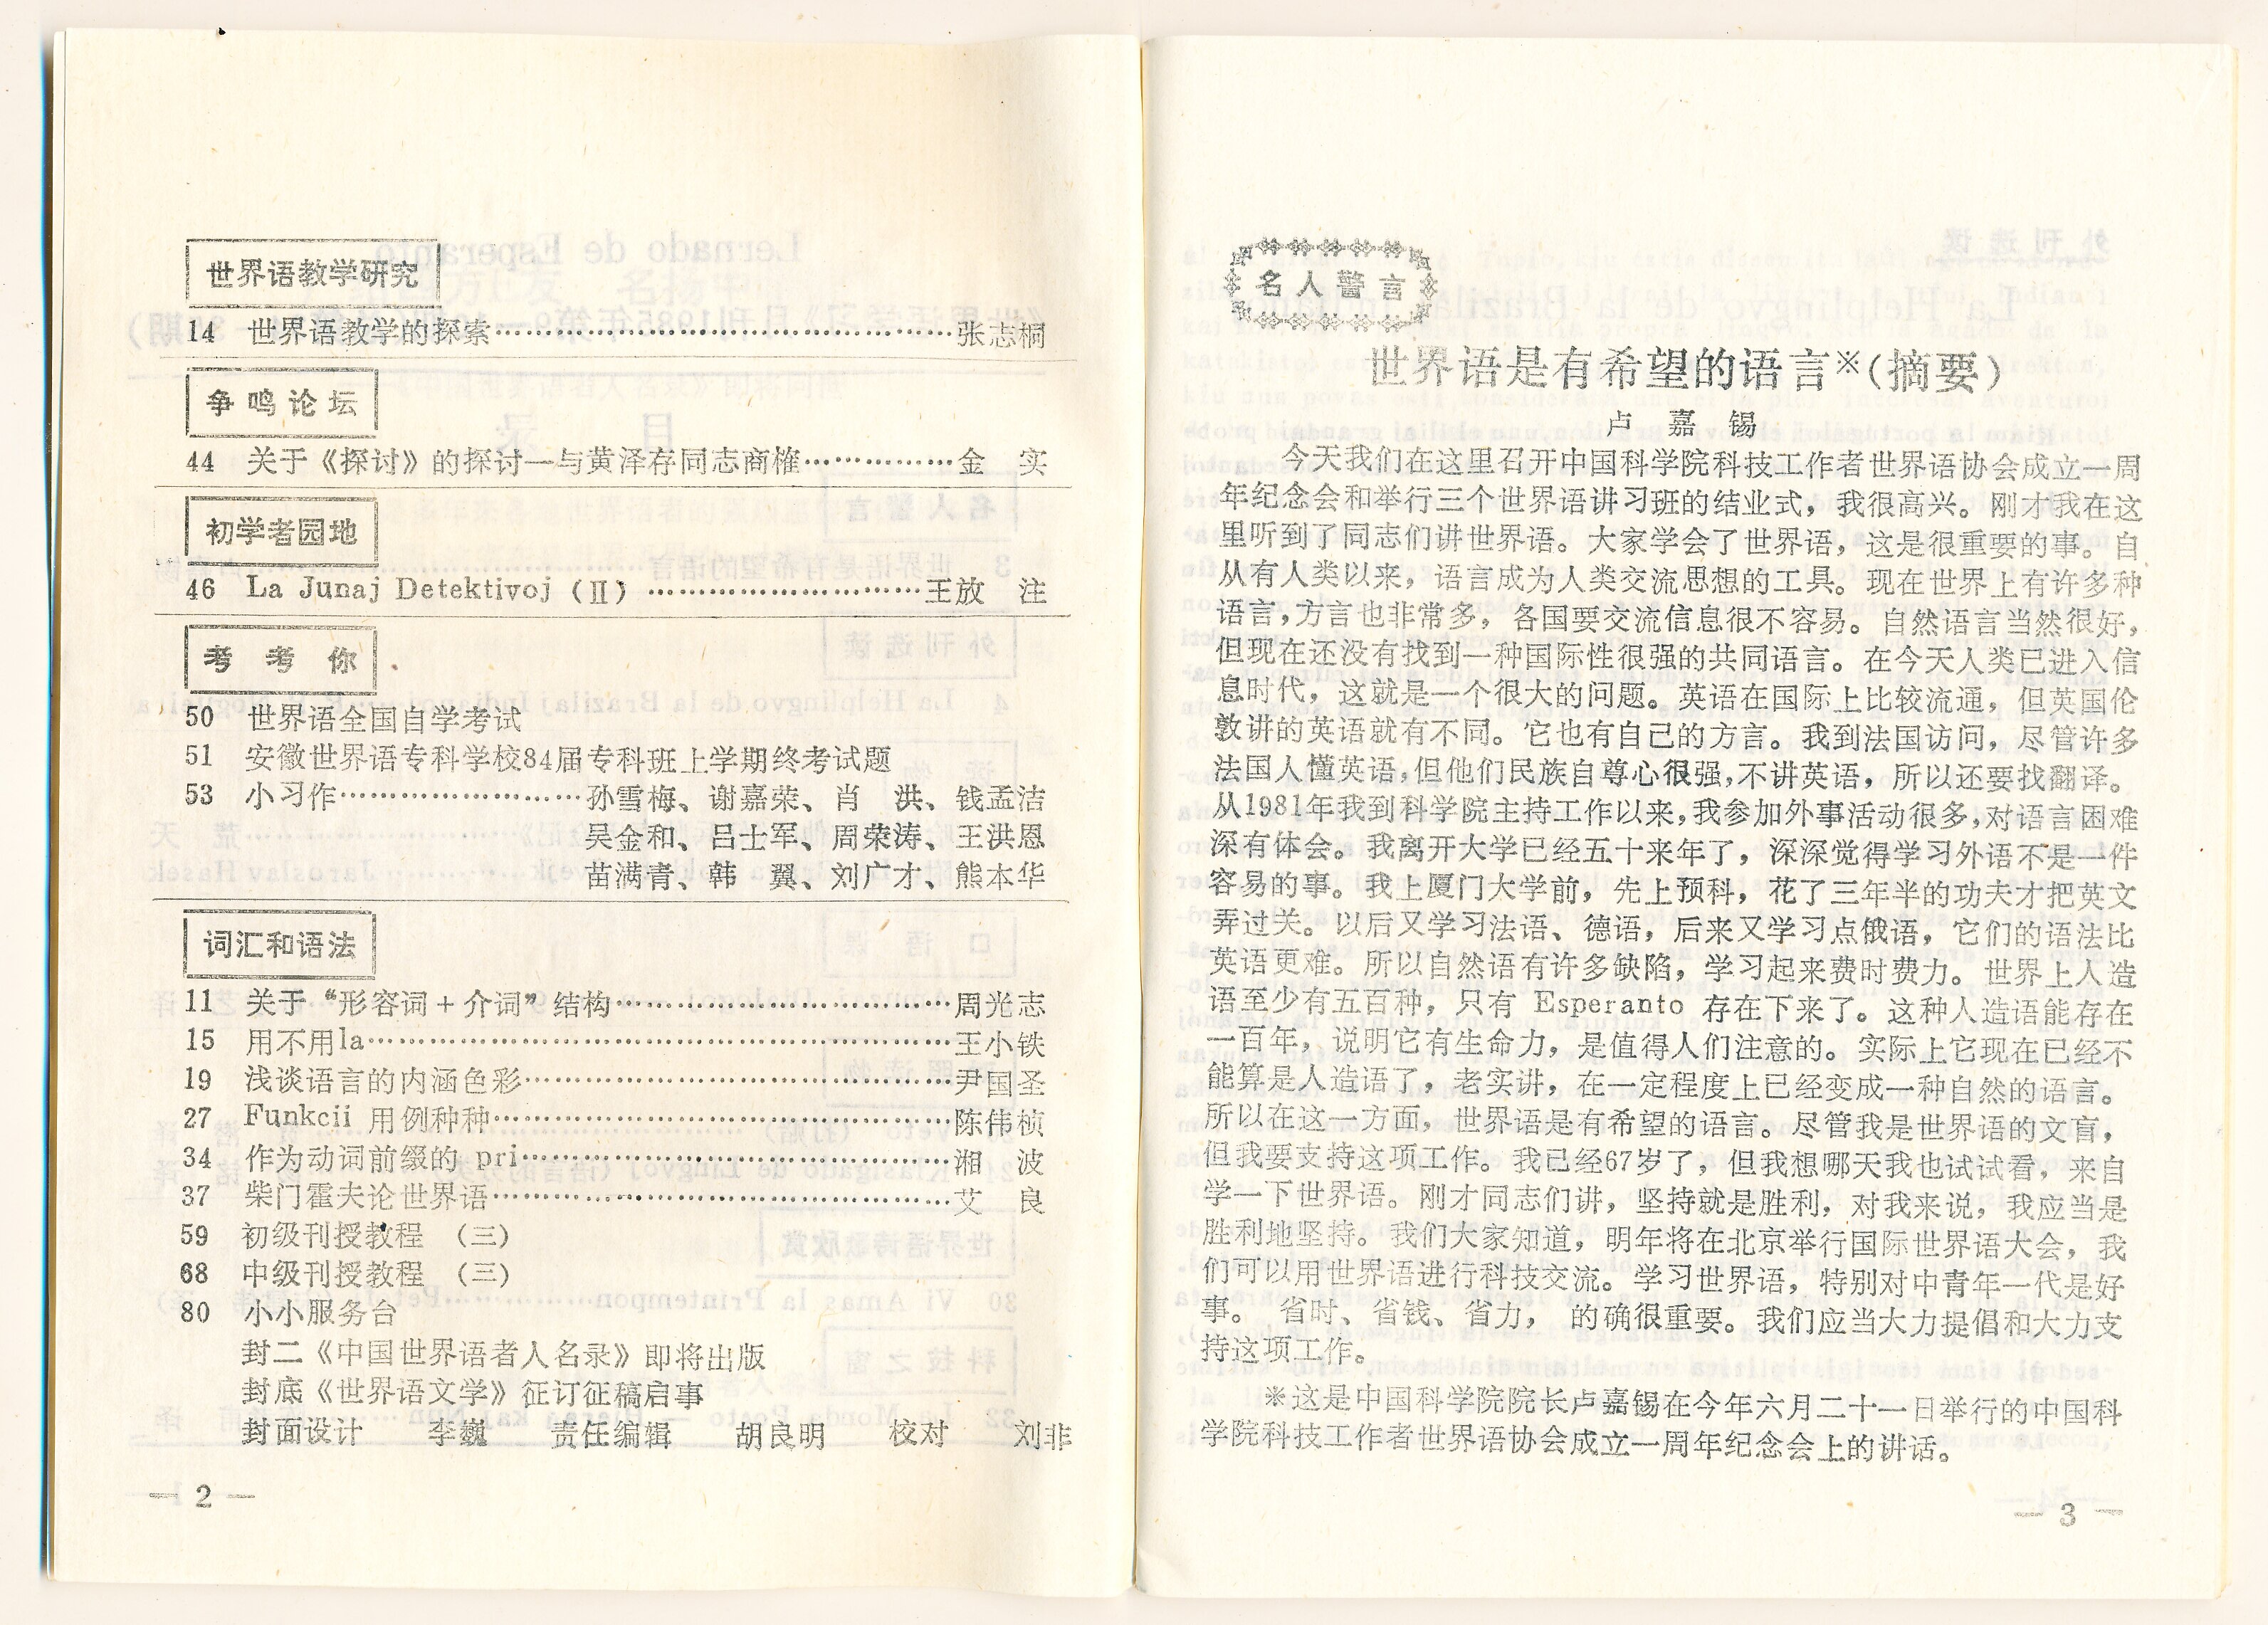 世界语教学研究
14 世界语教学的探索……………………………………张志桐
争鸣论坛
44 关于《探讨》的探讨—与黄泽存同志商榷……………金 实
初学者园地
46 La Junaj Detektivoj (Ⅱ) ………………………王放 注
考考你
50 世界语全国自学考试
51 安徽世界语专科学校84届专科班上学期终考试题
53 小习作……………………孙雪梅、谢嘉荣、肖 洪、钱孟洁
吴金和、吕士军、周荣涛、王洪恩
苗满青、韩 翼、刘广才、熊本华
词汇和语法
11 关于“形容词+介词”结构……………………………周光志
15 用不用la……………………………………………………王小铁
19 浅谈语言的内涵色彩……………………………………尹国圣
27 Funkcii 用例种种………………………………………陈伟桢
34 作为动词前缀的 pri……………………………………湘 波
37 柴门霍夫论世界语………………………………………艾 良
59 初级刊授教程 (三)
68 中级刊授教程 (三)
80 小小服务台
封二《中国世界语者人名录》即将出版
封底《世界语文学》征订征稿启事
封面设计 李巍 责任编辑 胡良明 校对 刘非
— 2 —
名人警言
世界语是有希望的语言※(摘要)
卢 嘉 锡
今天我们在这里召开中国科学院科技工作者世界语协会成立一周
年纪念会和举行三个世界语讲习班的结业式，我很高兴。刚才我在这
里听到了同志们讲世界语。大家学会了世界语，这是很重要的事。自
从有人类以来，语言成为人类交流思想的工具。现在世界上有许多种
语言，方言也非常多，各国要交流信息很不容易。自然语言当然很好，
但现在还没有找到一种国际性很强的共同语言。在今天人类已进入信
息时代，这就是一个很大的问题。英语在国际上比较流通，但英国伦
敦讲的英语就有不同。它也有自己的方言。我到法国访问，尽管许多
法国人懂英语，但他们民族自尊心很强，不讲英语，所以还要找翻译。
从1981年我到科学院主持工作以来，我参加外事活动很多，对语言困难
深有体会。我离开大学已经五十来年了，深深觉得学习外语不是一件
容易的事。我上厦门大学前，先上预科，花了三年半的功夫才把英文
弄过关。以后又学习法语、德语，后来又学习点俄语，它们的语法比
英语更难。所以自然语有许多缺陷，学习起来费时费力。世界上人造
语至少有五百种，只有 Esperanto 存在下来了。这种人造语能存在
一百年，说明它有生命力，是值得人们注意的。实际上它现在已经不
能算是人造语了，老实讲，在一定程度上已经变成一种自然的语言。
所以在这一方面，世界语是有希望的语言。尽管我是世界语的文盲，
但我要支持这项工作。我已经67岁了，但我想哪天我也试试看，来自
学一下世界语。刚才同志们讲，坚持就是胜利，对我来说，我应当是
胜利地坚持。我们大家知道，明年将在北京举行国际世界语大会，我
们可以用世界语进行科技交流。学习世界语，特别对中青年一代是好
事。 省时、省钱、省力， 的确很重要。我们应当大力提倡和大力支
持这项工作。
※这是中国科学院院长卢嘉锡在今年六月二十一日举行的中国科
学院科技工作者世界语协会成立一周年纪念会上的讲话。
— 3 —